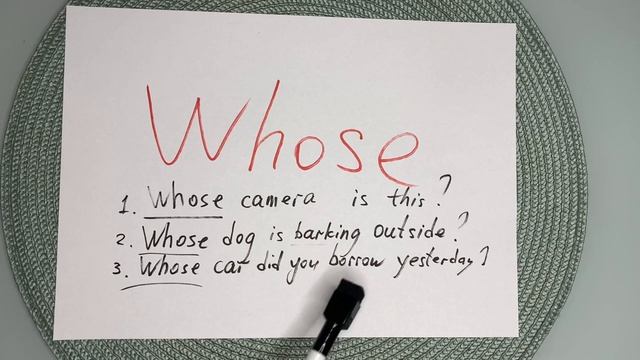 Whose
1. Whose camera is this?
2. Whose dog is barking outside?
3. Whose car did you borrow yesterday?